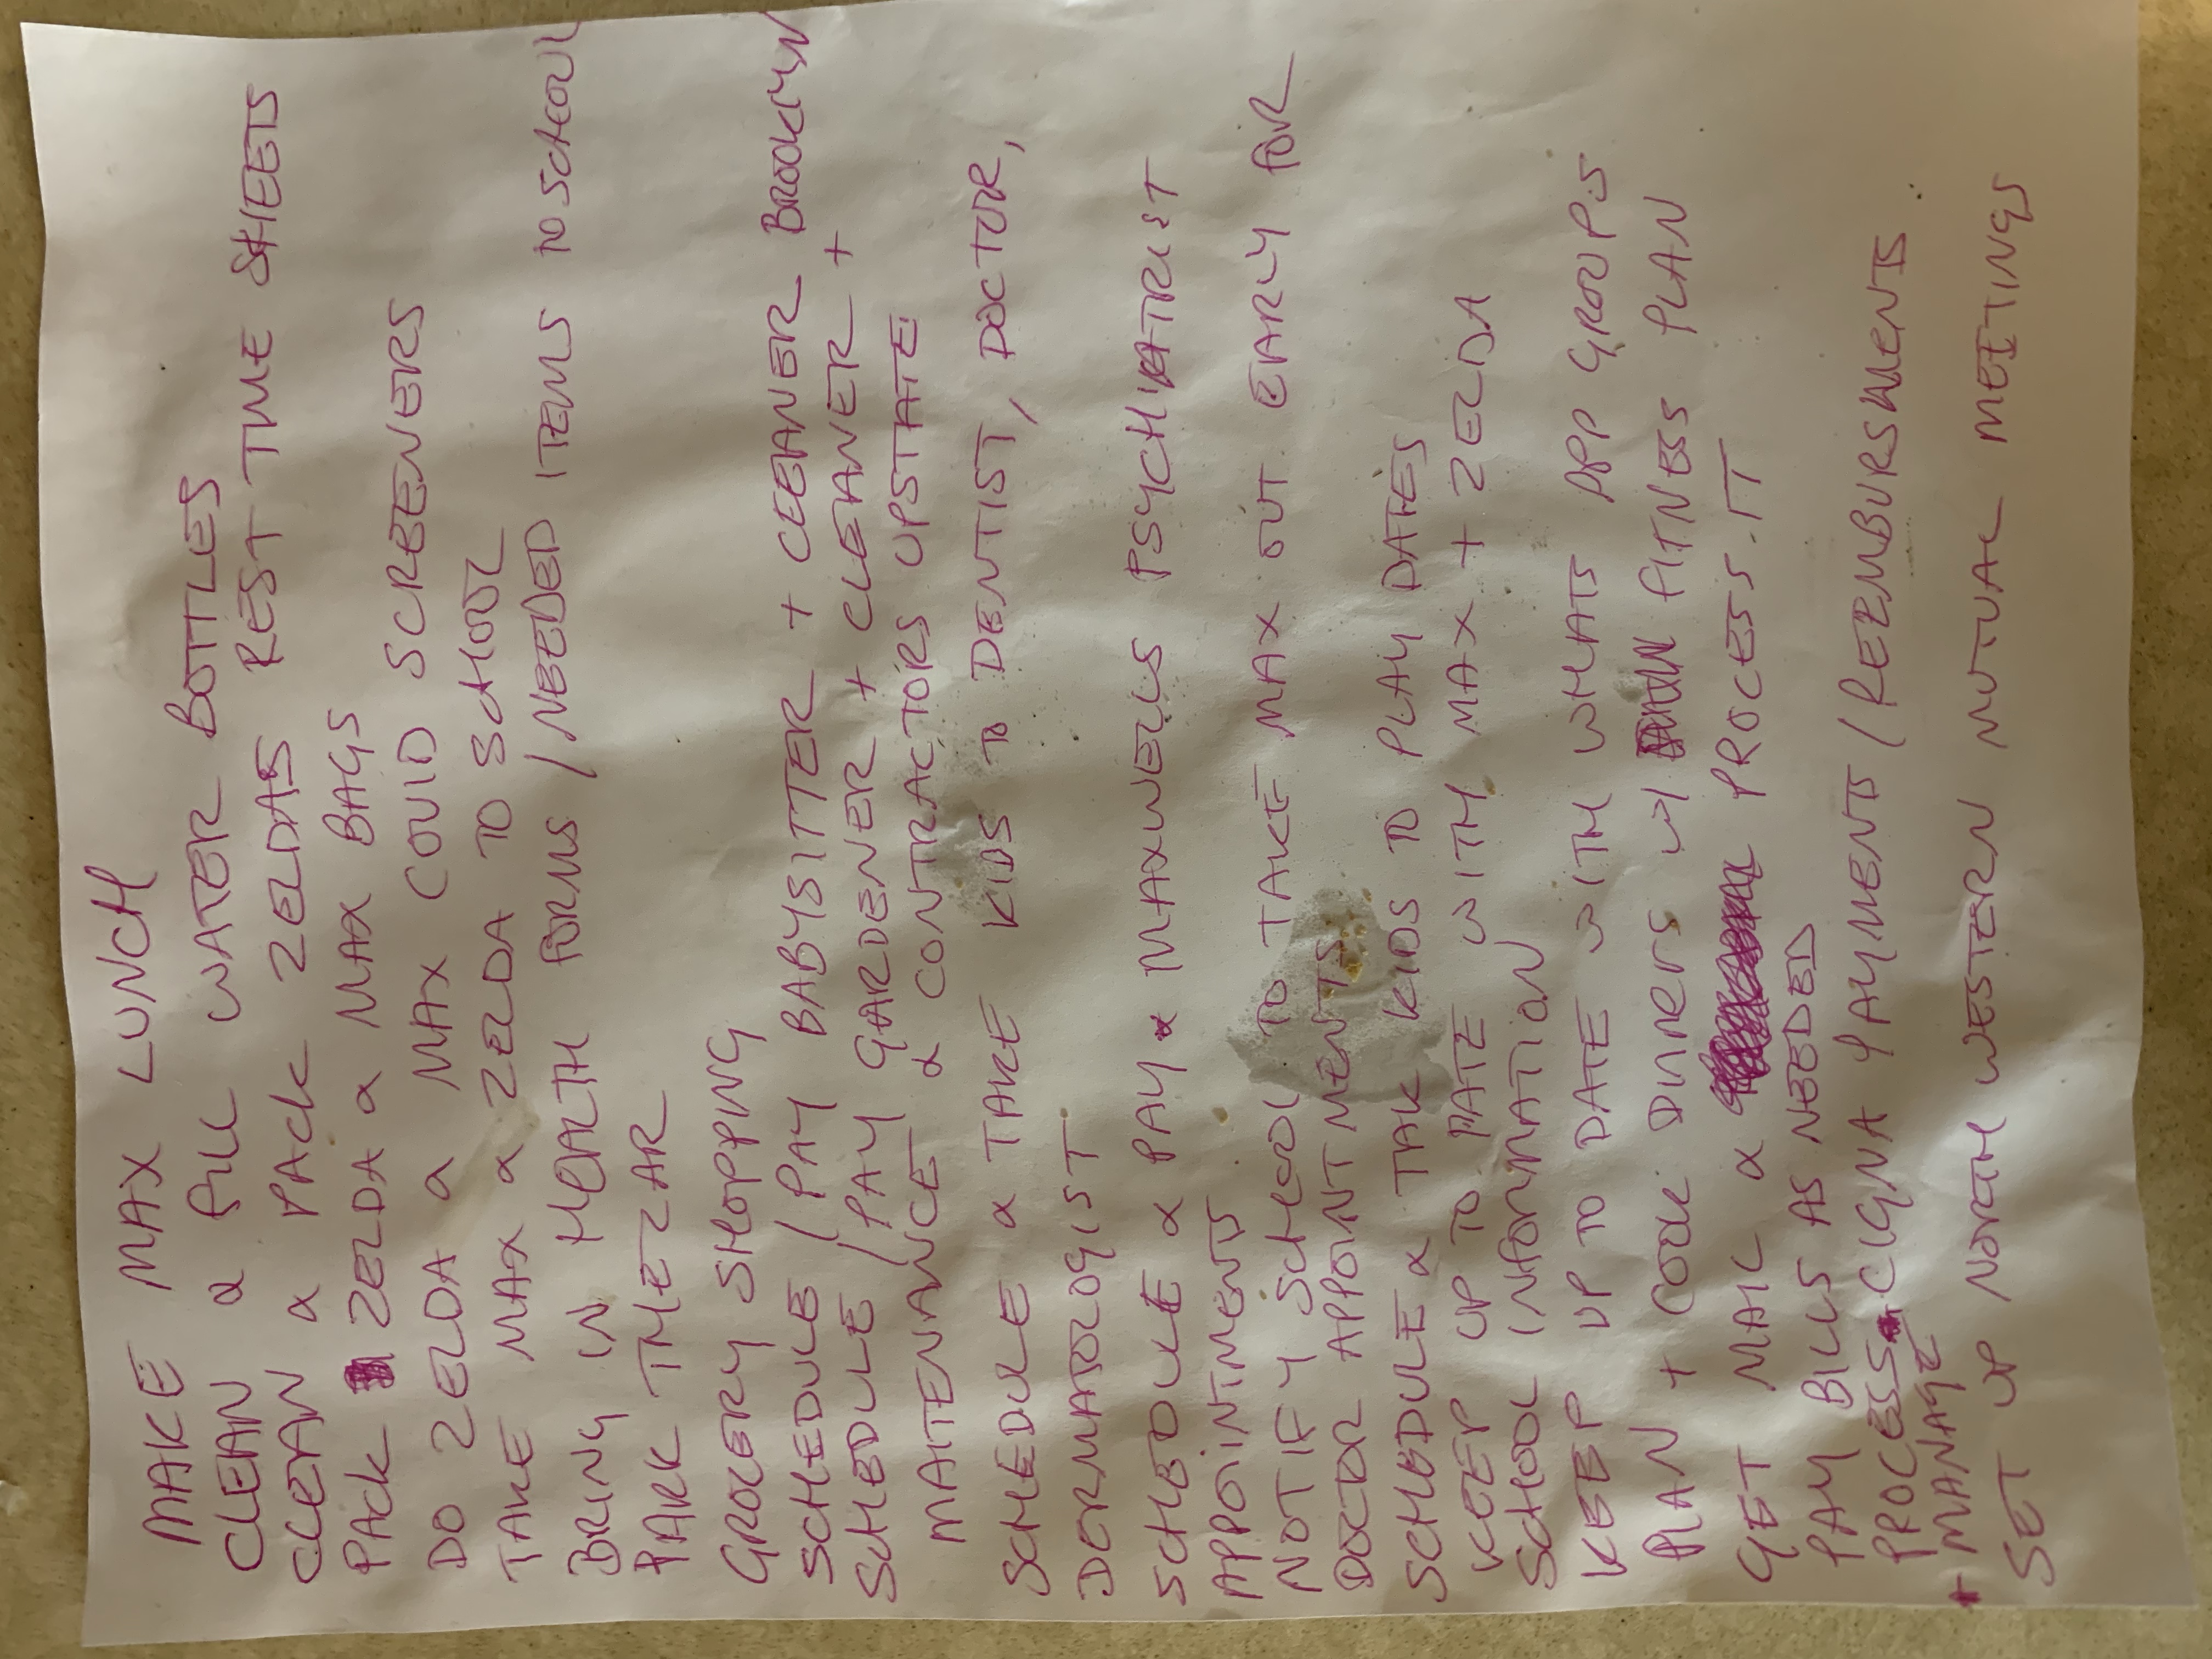 MAKE MAX LUNCH
CLEAN & FILL WATER BOTTLES
CLEAN & PACK ZELDAS REST TIME SHEETS
PACK ZELDA & MAX BAGS
DO ZELDA & MAX COVID SCREENERS
TAKE MAX & ZELDA TO SCHOOL
BRING IN HEALTH FORMS / NEEDED ITEMS TO SCHOOL
PARK THE CAR
GROCERY SHOPPING
SCHEDULE / PAY BABYSITTER + CLEANER BROOKLYN
SCHEDLLE / PAY GARDENER + CLEANER +
MAITENANCE & CONTRACTORS UPSTATE
SCHEDULE & TAKE KIDS TO DENTIST, DOCTOR,
DERMATOLOGIST
SCHEDULE & PAY & MAXWELLS PSYCHIATRIST
APPOINTMENTS
NOTIFY SCHOOL TO TAKE MAX OUT EARLY FOR
DOCTOR APPOINTMENTS
SCHEDULE & TAK KIDS TO PLAY DATES
KEEP UP TO DATE WITH MAX + ZELDA
SCHOOL INFORMATION
KEEP UP TO DATE WITH WHATS APP GROUPS
PLAN + COOK DINNERS W/ FITNESS PLAN
GET MAIL & PROCESS IT
PAY BILLS AS NEEDED
PROCESS CIGNA PAYMENTS / REEMBURSMENTS
+ MANAGE
SET UP NORTH WESTERN MUTUAL MEETINGS